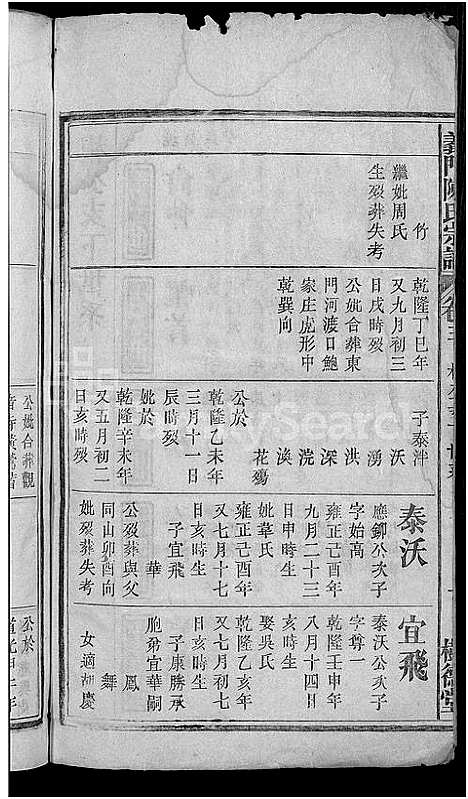 義門陳氏宗譜
卷三
樹德堂
竹
繼妣周氏
生殁葬失考
乾隆丁巳年
又九月初三
日戌時殁
公妣合葬東
門河渡口鮑
家庄虎形中
乾巽向
子泰泮
沃
湧
洪
深
浣
渙
花殤
公於
乾隆乙未年
三月十一日
辰時殁
妣於
乾隆辛未年
又五月初二
日亥時殁
泰沃
應鉚公次子
字始高
雍正己酉年
九月二十三
日申時生
妣韋氏
雍正己酉年
又七月十七
日亥時生
子宜飛
華
公殁葬與父
同山卯酉向
妣殁葬失考
宜飛
泰沃公次子
字尊一
乾隆壬申年
八月十四日
亥時生
娶吳氏
乾隆乙亥年
又七月初七
日亥時生
子康勝承
胞弟宜華嗣
鳳
舞
女適胡慶
公妣合葬觀
公於